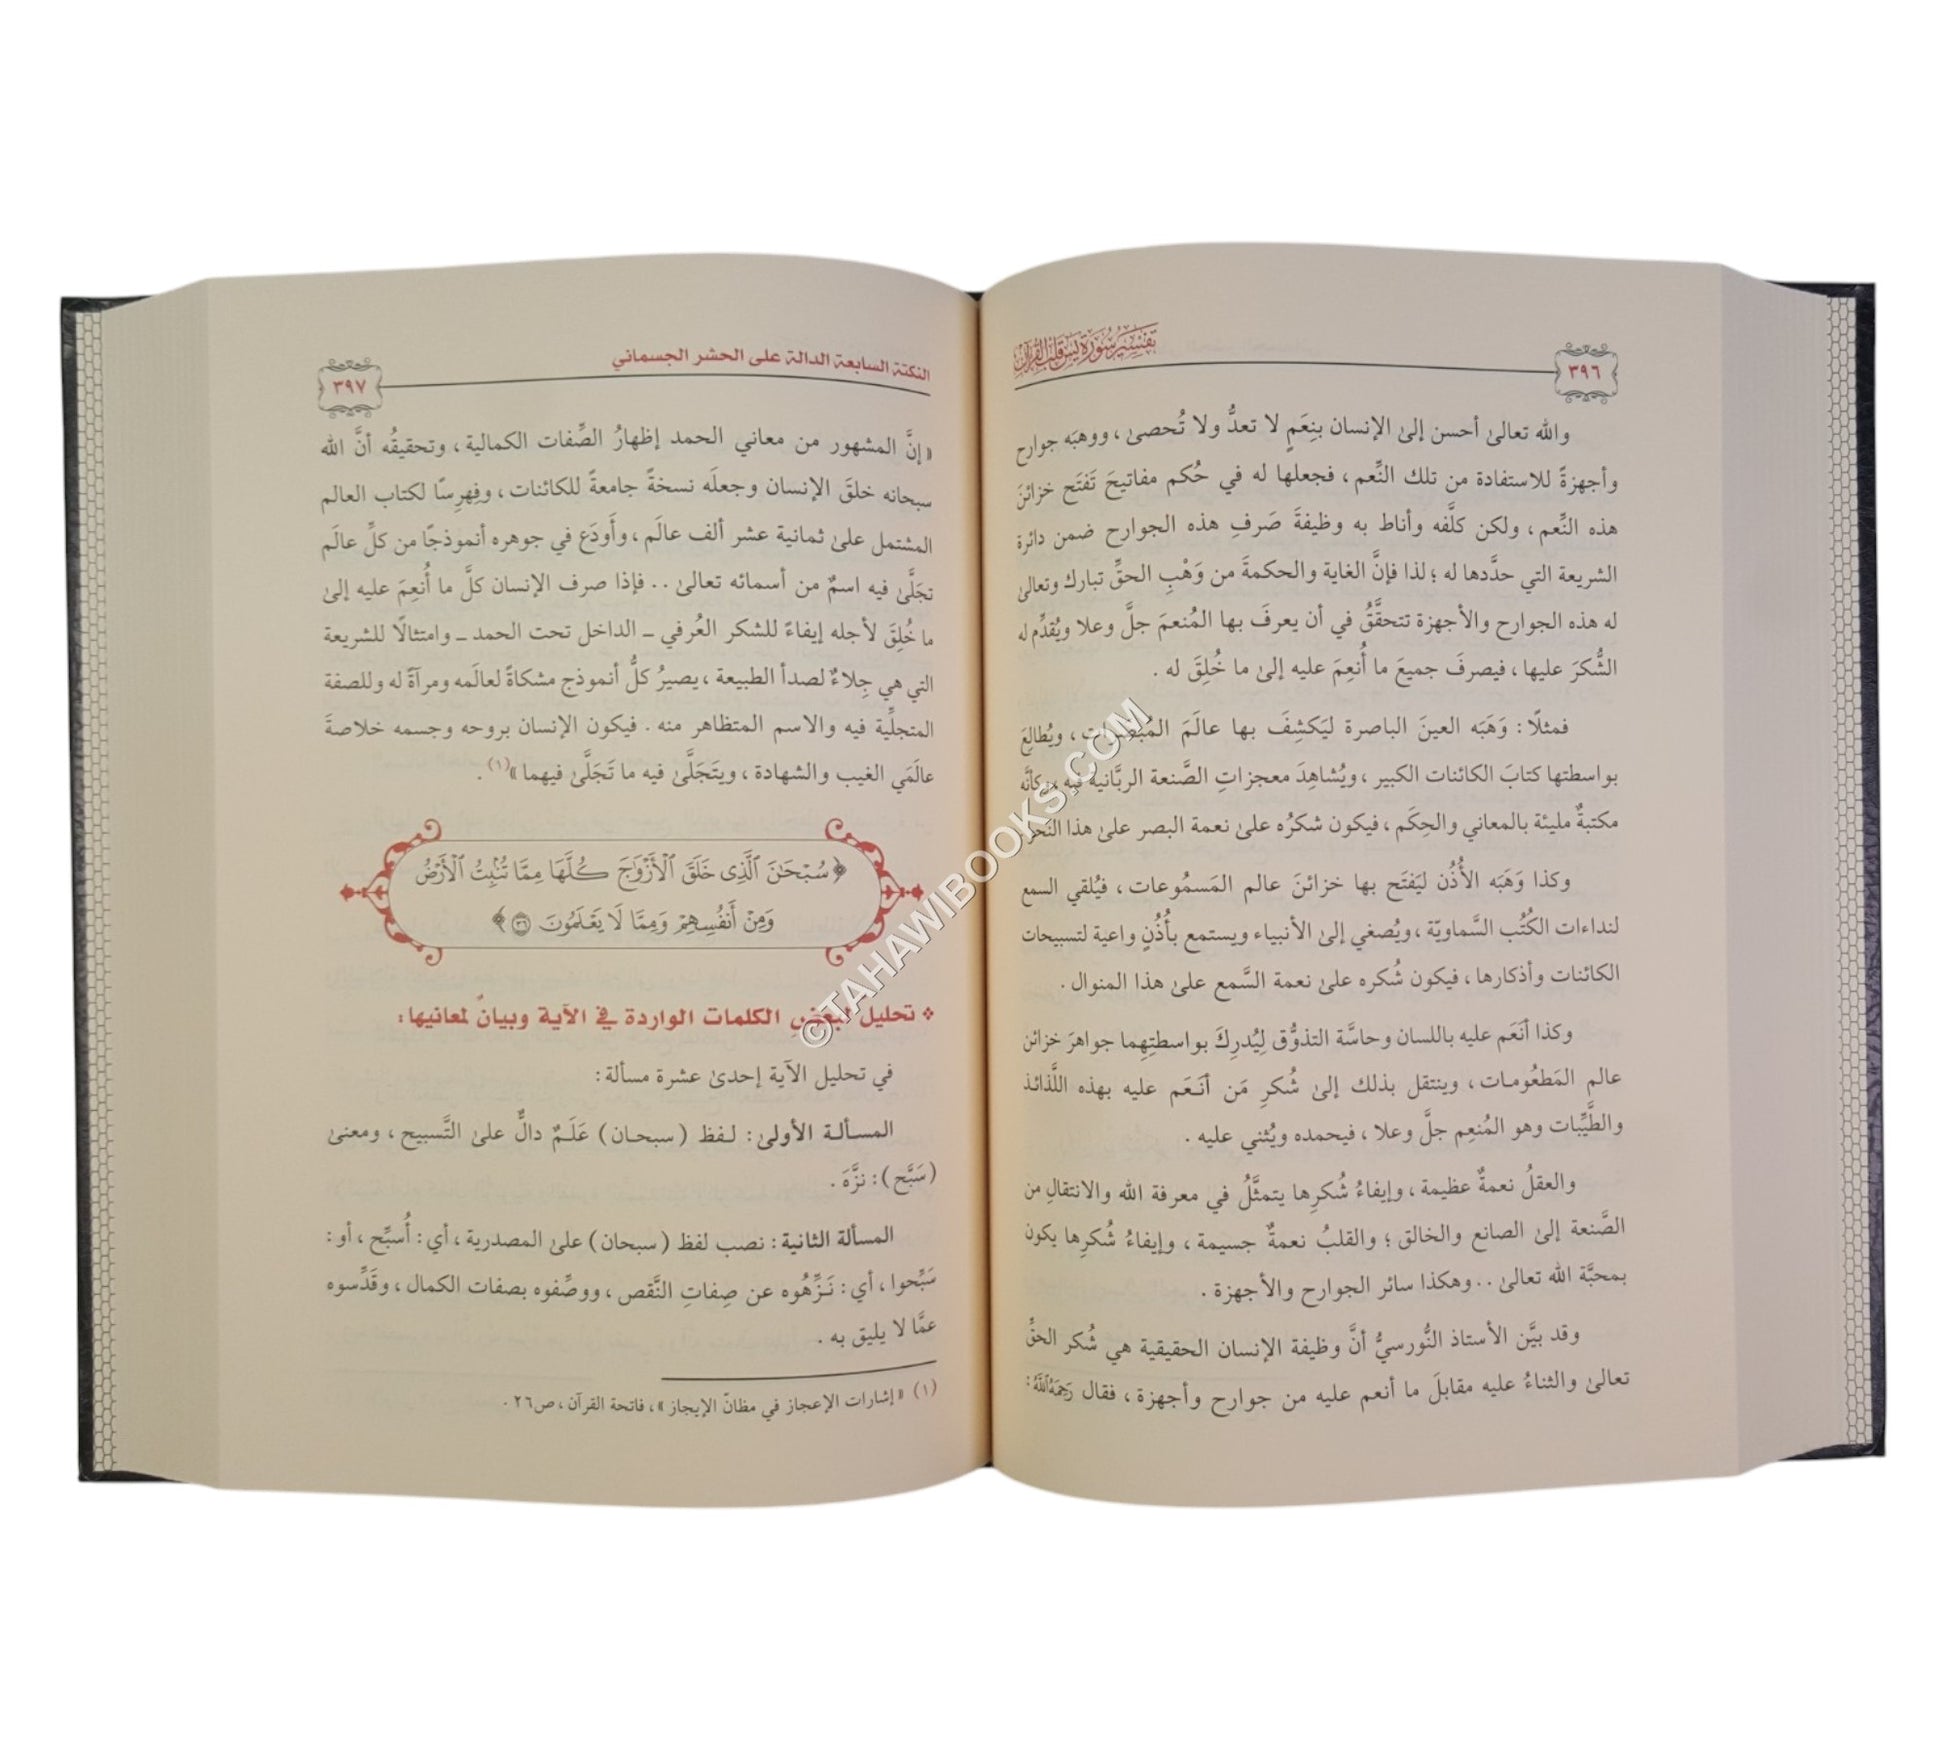 تفسير سورة يس قلب القرآن
٣٩٦
والله تعالىٰ أحسن إلىٰ الإنسان بنِعَمٍ لا تعدُّ ولا تُحصىٰ ، ووهبَه جوارح
وأجهزةً للاستفادة من تلك النِّعم ، فجعلها له في حُكم مفاتيحَ تَفتَح خزائنَ
هذه النِّعم ، ولكن كلَّفه وأناط به وظيفةَ صَرفِ هذه الجوارح ضمن دائرة
الشريعة التي حدَّدها له ؛ لذا فإنَّ الغاية والحكمةَ من وَهْبِ الحقِّ تبارك وتعالىٰ
له هذه الجوارح والأجهزة تتحقَّقُ في أن يعرفَ بها المُنعمَ جلَّ وعلا ويُقدِّم له
الشُّكرَ عليها ، فيصرفَ جميعَ ما أُنعِمَ عليه إلىٰ ما خُلِقَ له .
فمثلًا : وَهَبَه العينَ الباصرة ليَكشِفَ بها عالَمَ المُبصَرات ، ويُطالِعَ
بواسطتها كتابَ الكائنات الكبير ، ويُشاهِدَ معجزاتِ الصَّنعة الربَّانية فيه ، وكأنَّه
مكتبةٌ مليئة بالمعاني والحِكَم ، فيكون شكرُه علىٰ نعمة البصر علىٰ هذا النَّحو
وكذا وَهَبَه الأُذُن ليَفتَح بها خزائنَ عالم المَسمُوعات ، فيُلقي السمع
لنداءات الكُتُب السَّماويّة ، ويُصغي إلىٰ الأنبياء ويستمع بأُذُنٍ واعية لتسبيحات
الكائنات وأذكارها ، فيكون شُكره علىٰ نعمة السَّمع علىٰ هذا المنوال .
وكذا أنعَم عليه باللسان وحاسَّة التذوُّق لِيُدرِكَ بواسطتِهِما جواهرَ خزائن
عالم المَطعُومات ، وينتقل بذلك إلىٰ شُكرِ مَن أنعَم عليه بهذه اللَّذائذ
والطَّيِّبات وهو المُنعِم جلَّ وعلا ، فيحمده ويُثني عليه .
والعقلُ نعمةٌ عظيمة ، وإيفاءُ شُكرِها يتمثَّلُ في معرفة الله والانتقالِ من
الصَّنعة إلىٰ الصانع والخالق ؛ والقلبُ نعمةٌ جسيمة ، وإيفاءُ شُكرِها يكون
بمحبَّة الله تعالىٰ . . وهكذا سائر الجوارح والأجهزة .
وقد بيَّن الأستاذ النُّورسيُّ أنَّ وظيفة الإنسان الحقيقية هي شُكر الحقِّ
تعالىٰ والثناءُ عليه مقابلَ ما أنعم عليه من جوارح وأجهزة ، فقال رَحِمَهُ اللَّهُ :
النكتة السابعة الدالة على الحشر الجسماني
٣٩٧
« إنَّ المشهور من معاني الحمد إظهارُ الصِّفات الكمالية ، وتحقيقُه أنَّ الله
سبحانه خلقَ الإنسان وجعلَه نسخةً جامعةً للكائنات ، وفِهرِسًا لكتاب العالم
المشتمل علىٰ ثمانية عشر ألف عالَم ، وأَودَع في جوهره أنموذجًا من كلِّ عالَم
تجَلَّىٰ فيه اسمٌ من أسمائه تعالىٰ . . فإذا صرف الإنسان كلَّ ما أُنعِمَ عليه إلىٰ
ما خُلِقَ لأجله إيفاءً للشكر العُرفي ـ الداخل تحت الحمد ـ وامتثالًا للشريعة
التي هي جِلاءٌ لصدأ الطبيعة ، يصيرُ كلُّ أنموذج مشكاةً لعالَمه ومرآةً له وللصفة
المتجلِّية فيه والاسم المتظاهر منه . فيكون الإنسان بروحه وجسمه خلاصةَ
عالَمَي الغيب والشهادة ، ويتَجَلَّىٰ فيه ما تَجَلَّىٰ فيهما »(١) .
﴿ سُبْحَٰنَ ٱلَّذِى خَلَقَ ٱلْأَزْوَٰجَ كُلَّهَا مِمَّا تُنۢبِتُ ٱلْأَرْضُ
وَمِنْ أَنفُسِهِمْ وَمِمَّا لَا يَعْلَمُونَ ٣٦ ﴾
❖ تحليل لبعض الكلمات الواردة في الآية وبيانٌ لمعانيها :
في تحليل الآية إحدىٰ عشرة مسألة :
المسألة الأولىٰ : لفظ ( سبحان ) عَلَمٌ دالٌّ علىٰ التَّسبيح ، ومعنىٰ
( سَبَّح ) : نزَّهَ .
المسألة الثانية : نصب لفظ ( سبحان ) علىٰ المصدرية ، أي : أُسبِّح ، أو :
سَبِّحوا ، أي : نَزِّهُوه عن صِفاتِ النَّقص ، ووصِّفوه بصفات الكمال ، وقَدِّسوه
عمَّا لا يليق به .
(١) « إشارات الإعجاز في مظانّ الإيجاز » ، فاتحة القرآن ، ص٢٦ .
©TAHAWIBOOKS.COM